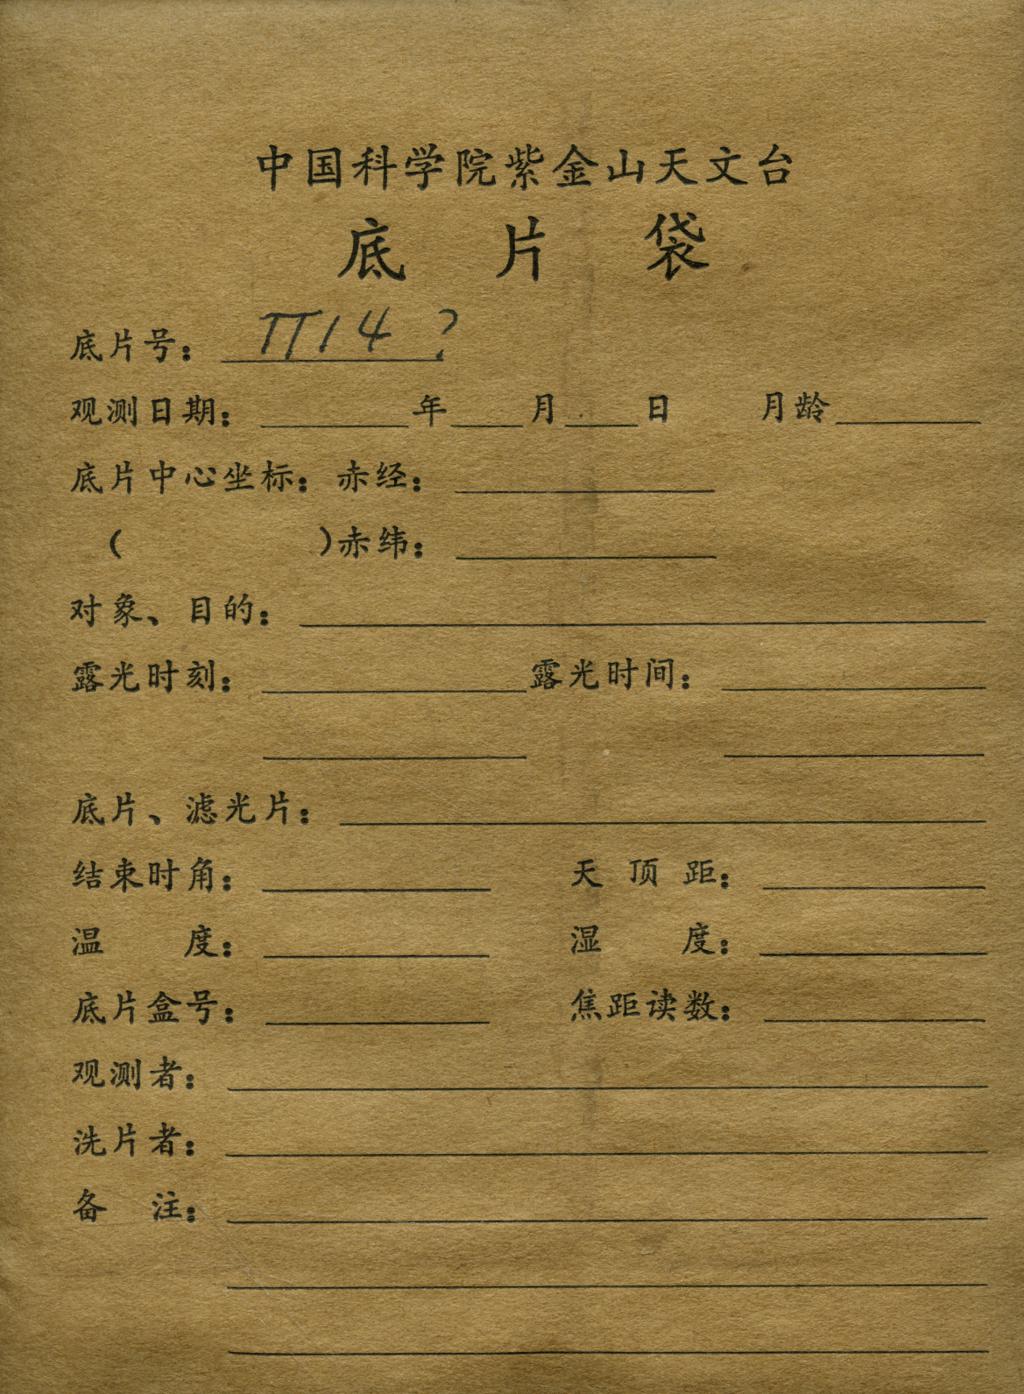 中国科学院紫金山天文台
底片袋
底片号： TT14?
观测日期： 年 月 日 月龄
底片中心坐标：赤经：
（ ）赤纬：
对象、目的：
露光时刻： 露光时间：
底片、滤光片：
结束时角： 天顶距：
温度： 湿度：
底片盒号： 焦距读数：
观测者：
洗片者：
备注：